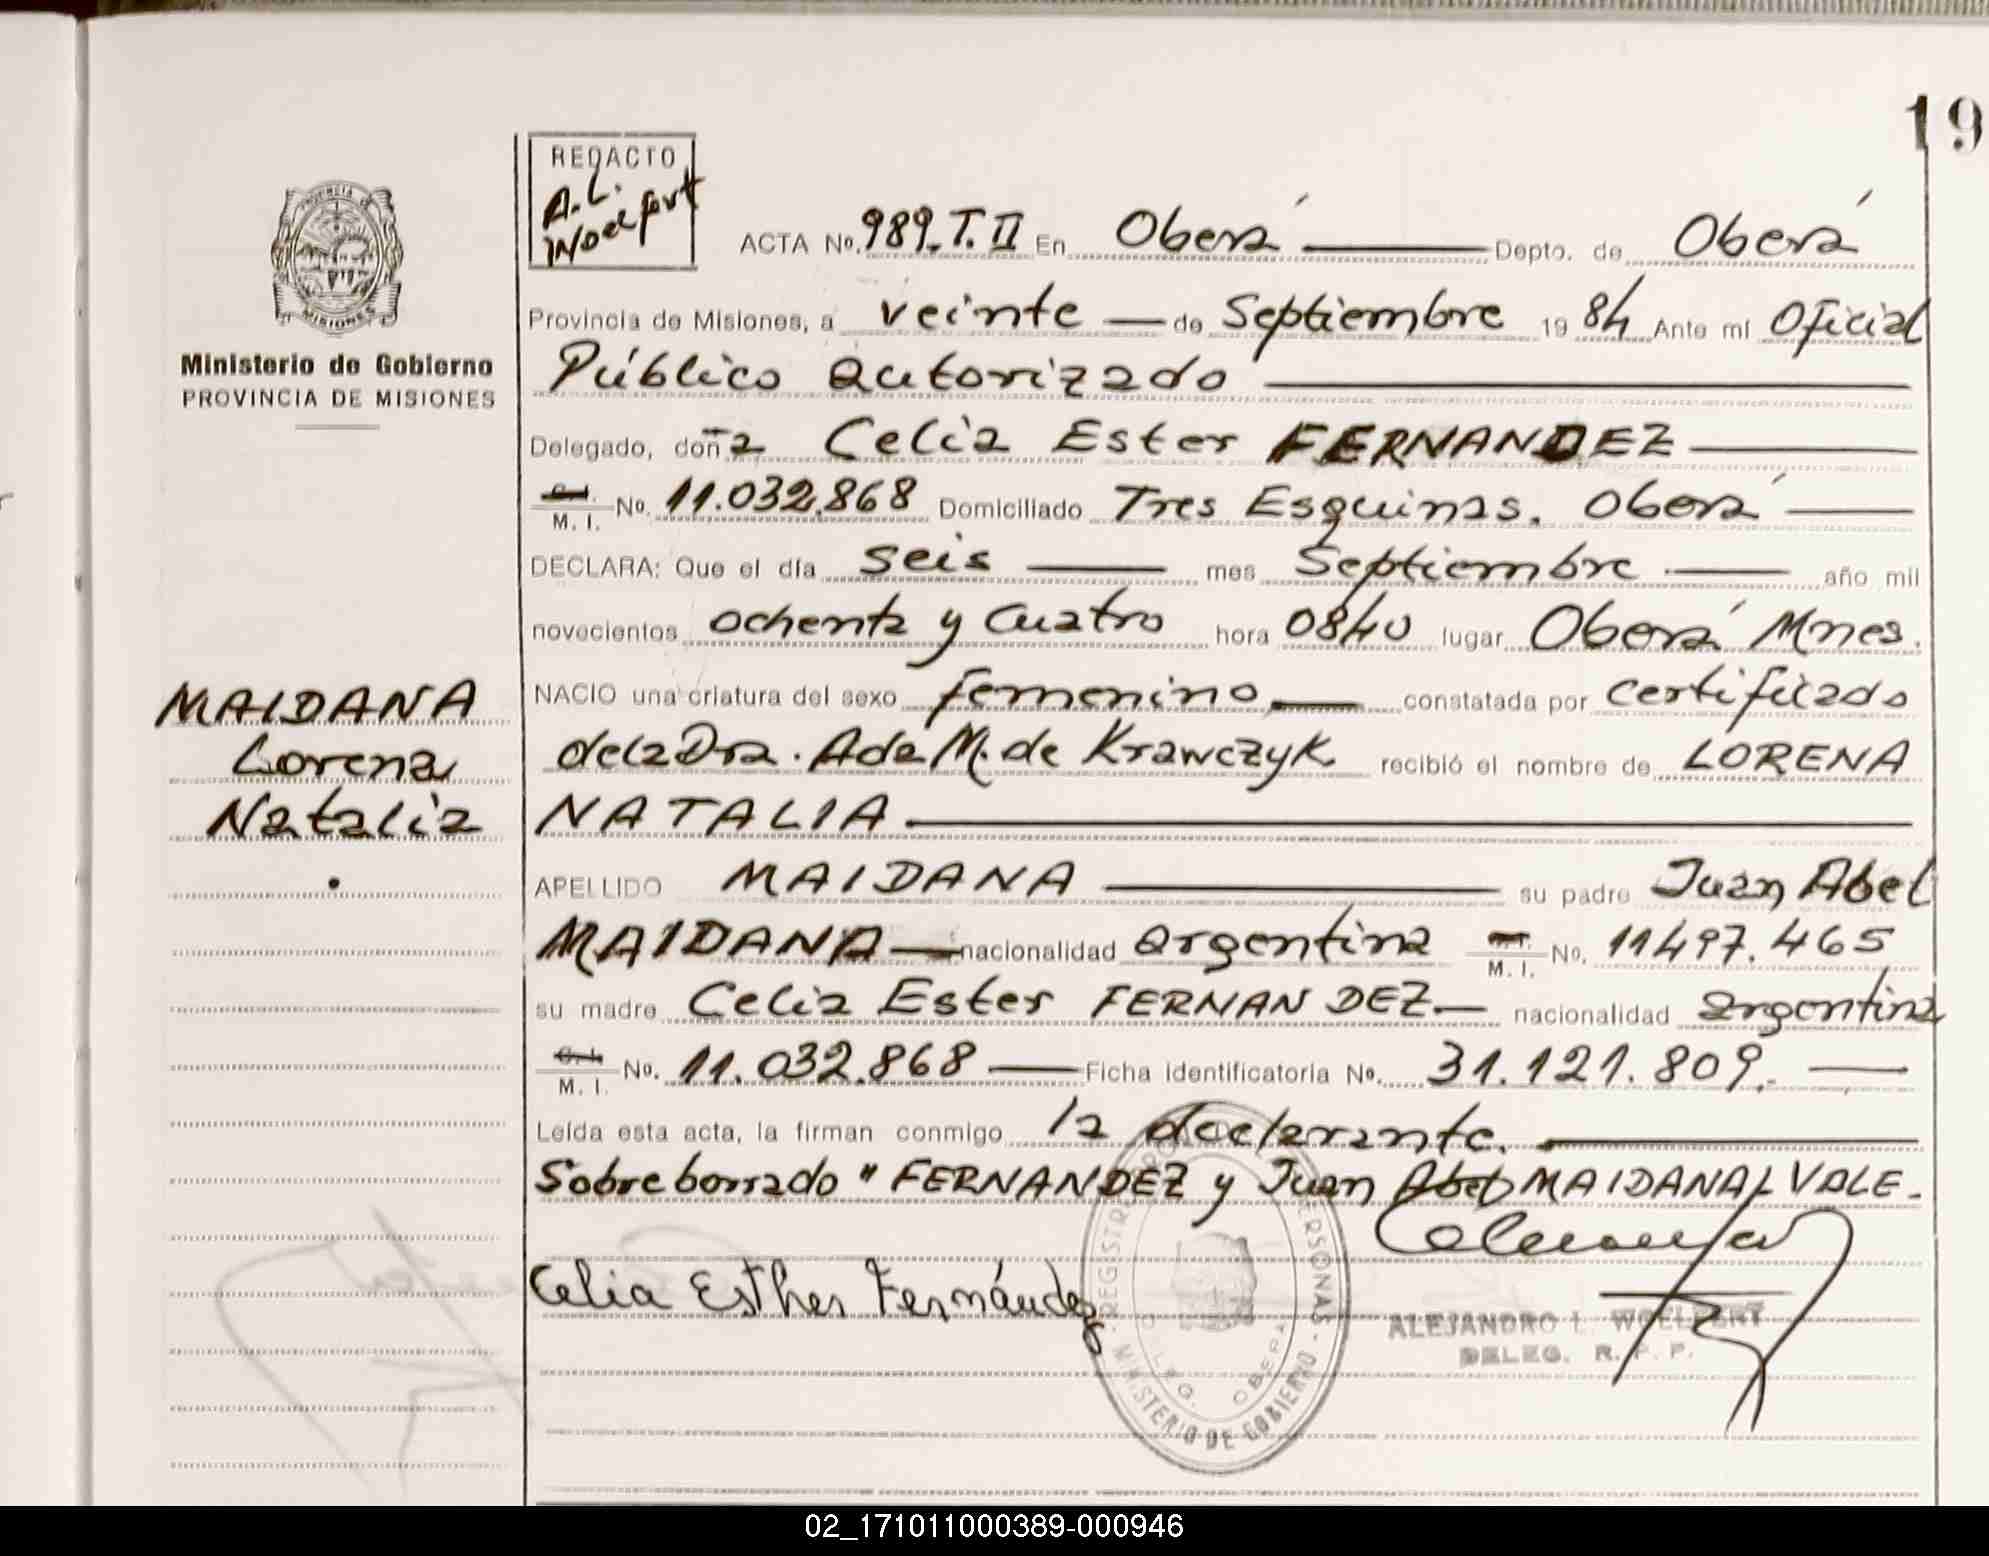 19
REDACTO
A. L.
Woelfert
PROVINCIA
MISIONES
Ministerio de Gobierno
PROVINCIA DE MISIONES
MAIDANA
Lorena
Natalia
ACTA No. 989.T.II En Oberá Depto. de Oberá
Provincia de Misiones, a veinte de Septiembre 19 84 Ante mí Oficial
Público autorizado
Delegado, doña Celia Ester FERNANDEZ
C.I. M. I. No. 11.032.868 Domiciliado Tres Esquinas. Oberá
DECLARA: Que el día seis mes Septiembre año mil
novecientos ochenta y cuatro hora 0840 lugar Oberá Mnes.
NACIO una criatura del sexo femenino constatada por certificado
de la Dra. Ada M. de Krawczyk recibió el nombre de LORENA
NATALIA
APELLIDO MAIDANA su padre Juan Abel
MAIDANA nacionalidad argentina M. I. No. 11497.465
su madre Celia Ester FERNANDEZ nacionalidad argentina
C.I. M. I. No. 11.032.868 Ficha identificatoria No. 31.121.809.
Leída esta acta, la firman conmigo la declarante.
Sobreborrado "FERNANDEZ y Juan Abel MAIDANA" VALE.
Celia Esther Fernández
REGISTRO PERSONAS - MINISTERIO DE GOBIERNO
DELEG. OBERA
ALEJANDRO L. WOELFERT
DELEG. R. P. P.
02_171011000389-000946